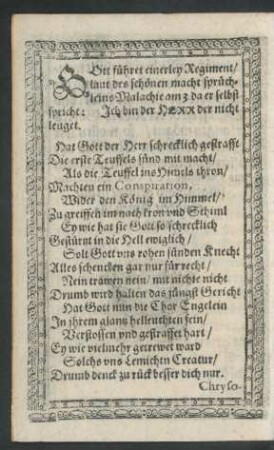 GOtt führet einerley Regiment/
laut des schönen macht sprüch-
leins Malachie am 3 da er selbst
spricht: Jch bin der HERR der nicht
leuget.
Hat Gott der Herr schrecklich gestrafft
Die erste Teuffels sünd mit macht/
Als die Teuffel ins Himels thron/
Machten ein Conspiration,
Wider den König im Himmel/
Zu greiffen im nach kron vnd Sthiml
Ey wie hat sie Gott so schrecklich
Gestürnt in die Hell ewiglich/
Solt Gott vns rohen sünden Knecht
Alles schencken gar nur für recht/
Nein träwen nein/ mit nichte nicht
Drumb wird halten das jüngst Gericht
Hat Gott nun die Chor Engelein
In jhrem glantz helleuchten sein/
Verstossen vnd gestraffet hart/
Ey wie vielmehr getrewet ward
Solchs vns Lemichtn Creatur/
Drumb denck zu rück besser dich nur.
Chryso-